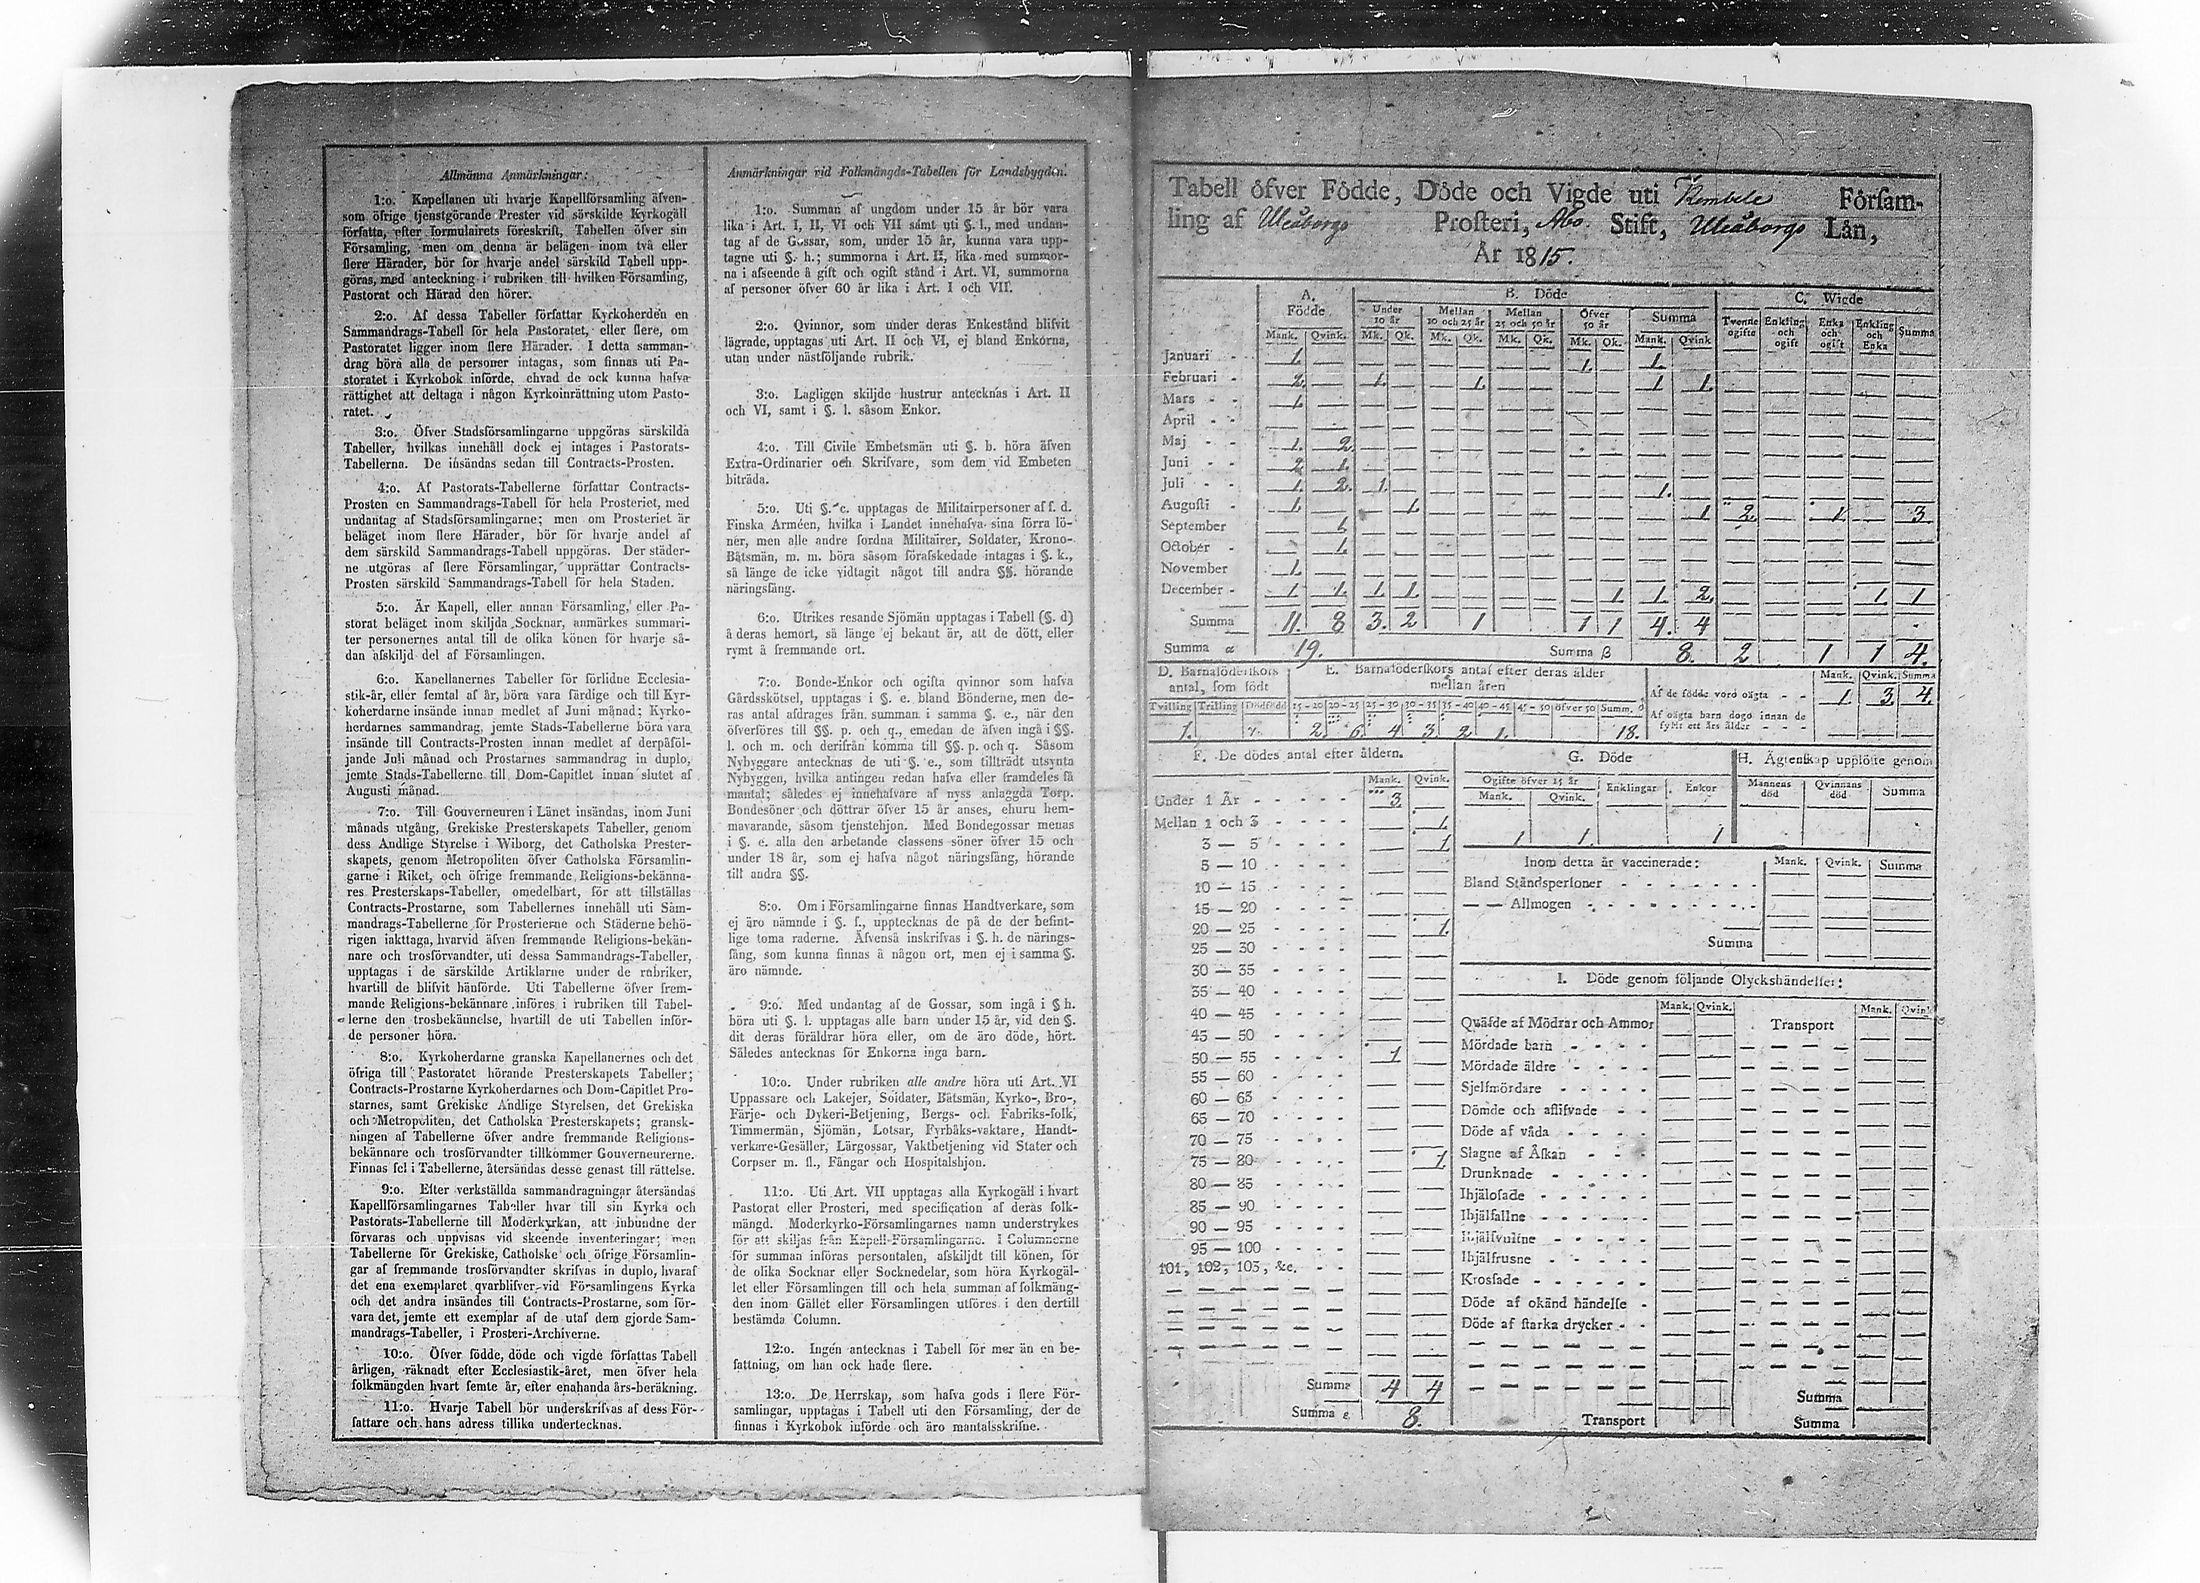 Allmänna Anmärkningar:
1:o. Kapellanen uti hvarje Kapellförsamling äfven-
som öfrige tjenstgörande Prester vid särskilde Kyrkogäll
författa, efter formulairets föreskrift, Tabellen öfver sin
Församling, men om denna är belägen inom två eller
flere Härader, bör för hvarje andel särskild Tabell upp-
göras, med anteckning i rubriken till hvilken Församling,
Pastorat och Härad den hörer.
2:o. Af dessa Tabeller författar Kyrkoherden en
Sammandrags-Tabell för hela Pastoratet, eller flere, om
Pastoratet ligger inom flere Härader. I detta samman-
drag böra alla de personer intagas, som finnas uti Pa-
storatet i Kyrkobok införde, ehvad de ock kunna hafva
rättighet att deltaga i någon Kyrkoinrättning utom Pasto-
ratet.
3:o. Öfver Stadsförsamlingarne uppgöras särskilda
Tabeller, hvilkas innehåll dock ej intages i Pastorats-
Tabellerna. De insändas sedan till Contracts-Prosten.
4:o. Af Pastorats-Tabellerne författar Contracts-
Prosten en Sammandrags-Tabell för hela Prosteriet, med
undantag af Stadsförsamlingarne; men om Prosteriet är
beläget inom flere Härader, bör för hvarje andel af
dem särskild Sammandrags-Tabell uppgöras. Der städer-
ne utgöras af flere Församlingar, upprättar Contracts-
Prosten särskild Sammandrags-Tabell för hela Staden.
5:o. Är Kapell, eller annan Församling, eller Pa-
storat beläget inom skiljda Socknar, anmärkes summari-
ter personernes antal till de olika könen för hvarje så-
dan afskiljd del af Församlingen.
6:o. Kapellanernes Tabeller för förlidne Ecclesia-
stik-år, eller femtal af år, böra vara färdige och till Kyr-
koherdarne insände innan medlet af Juni månad; Kyrko-
herdarnes sammandrag, jemte Stads-Tabellerne böra vara
insände till Contracts-Prosten innan medlet af derpåföl-
jande Juli månad och Prostarnes sammandrag in duplo,
jemte Stads-Tabellerne till Dom-Capitlet innan slutet af
Augusti månad.
7:o. Till Gouverneuren i Länet insändas, inom Juni
månads utgång, Grekiske Presterskapets Tabeller, genom
dess Andlige Styrelse i Wiborg, det Catholska Prester-
skapets, genom Metropoliten öfver Catholska Församlin-
garne i Riket, och öfrige fremmande Religions-bekänna-
res Presterskaps-Tabeller, omedelbart, för att tillställas
Contracts-Prostarne, som Tabellernes innehåll uti Sam-
mandrags-Tabellerne för Prosterierne och Städerne behö-
rigen iakttaga, hvarvid äfven fremmande Religions-bekän-
nare och trosförvandter, uti dessa Sammandrags-Tabeller,
upptagas i de särskilde Artiklarne under de rubriker,
hvartill de blifvit hänförde. Uti Tabellerne öfver frem-
mande Religions-bekännare införes i rubriken till Tabel-
lerne den trosbekännelse, hvartill de uti Tabellen inför-
de personer höra.
8:o. Kyrkoherdarne granska Kapellanernes och det
öfriga till Pastoratet hörande Presterskapets Tabeller;
Contracts-Prostarne Kyrkoherdarnes och Dom-Capitlet Pro-
starnes, samt Grekiske Andlige Styrelsen, det Grekiska
och Metropoliten, det Catholska Presterskapets; gransk-
ningen af Tabellerne öfver andre fremmande Religions-
bekännare och trosförvandter tillkommer Gouverneurerne.
Finnas fel i Tabellerne, återsändas desse genast till rättelse.
9:o. Efter verkställda sammandragningar återsändas
Kapellförsamlingarnes Tabeller hvar till sin Kyrka och
Pastorats-Tabellerne till Moderkyrkan, att inbundne der
förvaras och uppvisas vid skeende inventeringar; men
Tabellerne för Grekiske, Catholske och öfrige Församlin-
gar af fremmande trosförvandter skrifvas in duplo, hvaraf
det ena exemplaret qvarblifver vid Församlingens Kyrka
och det andra insändes till Contracts-Prostarne, som för-
vara det, jemte ett exemplar af de utaf dem gjorde Sam-
mandrags-Tabeller, i Prosteri-Archiverne.
10:o. Öfver födde, döde och vigde författas Tabell
årligen, räknadt efter Ecclesiastik-året, men öfver hela
folkmängden hvart femte år, efter enahanda års-beräkning.
11:o. Hvarje Tabell bör underskrifvas af dess För-
fattare och hans adress tillika undertecknas.
Anmärkningar vid Folkmängds-Tabellen för Landsbygden.
1:o. Summan af ungdom under 15 år bör vara
lika i Art. I, II, VI och VII samt uti §. l., med undan-
tag af de Gossar, som, under 15 år, kunna vara upp-
tagne uti §. h.; summorna i Art. II, lika med summor-
na i afseende å gift och ogift stånd i Art. VI, summorna
af personer öfver 60 år lika i Art. I och VII.
2:o. Qvinnor, som under deras Enkestånd blifvit
lägrade, upptagas uti Art. II och VI, ej bland Enkorna,
utan under nästföljande rubrik.
3:o. Lagligen skiljde hustrur antecknas i Art. II
och VI, samt i §. l. såsom Enkor.
4:o. Till Civile Embetsmän uti §. b. höra äfven
Extra-Ordinarier och Skrifvare, som dem vid Embeten
biträda.
5:o. Uti §. c. upptagas de Militairpersoner af f. d.
Finska Arméen, hvilka i Landet innehafva sina förra lö-
ner, men alle andre fordna Militairer, Soldater, Krono-
Båtsmän, m. m. böra såsom förafskedade intagas i §. k.,
så länge de icke vidtagit något till andra §§. hörande
näringsfång.
6:o. Utrikes resande Sjömän upptagas i Tabell (§. d)
å deras hemort, så länge ej bekant är, att de dött, eller
rymt å fremmande ort.
7:o. Bonde-Enkor och ogifta qvinnor som hafva
Gårdsskötsel, upptagas i §. e. bland Bönderne, men de-
ras antal afdrages från summan i samma §. e., när den
öfverföres till §§. p. och q., emedan de äfven ingå i §§.
l. och m. och derifrån komma till §§. p. och q. Såsom
Nybyggare antecknas de uti §. e., som tillträdt utsynta
Nybyggen, hvilka antingen redan hafva eller framdeles få
mantal; således ej innehafvare af nyss anlaggda Torp.
Bondesöner och döttrar öfver 15 år anses, ehuru hem-
mavarande, såsom tjenstehjon. Med Bondegossar menas
i §. e. alla den arbetande classens söner öfver 15 och
under 18 år, som ej hafva något näringsfång, hörande
till andra §§.
8:o. Om i Församlingarne finnas Handtverkare, som
ej äro nämnde i §. f., upptecknas de på de der befint-
lige toma raderne. Äfvenså inskrifvas i §. h. de närings-
fång, som kunna finnas å någon ort, men ej i samma §.
äro nämnde.
9:o. Med undantag af de Gossar, som ingå i § h.
böra uti §. l. upptagas alle barn under 15 år, vid den §.
dit deras föräldrar höra eller, om de äro döde, hört.
Således antecknas för Enkorna inga barn.
10:o. Under rubriken alle andre höra uti Art. VI
Uppassare och Lakejer, Soldater, Båtsmän, Kyrko-, Bro-,
Färje- och Dykeri-Betjening, Bergs- och Fabriks-folk,
Timmermän, Sjömän, Lotsar, Fyrbåks-vaktare, Handt-
verkare-Gesäller, Lärgossar, Vaktbetjening vid Stater och
Corpser m. fl., Fångar och Hospitalshjon.
11:o. Uti Art. VII upptagas alla Kyrkogäll i hvart
Pastorat eller Prosteri, med specification af deras folk-
mängd. Moderkyrko-Församlingarnes namn understrykes
för att skiljas från Kapell-Församlingarne. I Columnerne
för summan införas persontalen, afskiljdt till könen, för
de olika Socknar eller Socknedelar, som höra Kyrkogäl-
let eller Församlingen till och hela summan af folkmäng-
den inom Gället eller Församlingen utföres i den dertill
bestämda Column.
12:o. Ingen antecknas i Tabell för mer än en be-
fattning, om han ock hade flere.
13:o. De Herrskap, som hafva gods i flere För-
samlingar, upptagas i Tabell uti den Församling, der de
finnas i Kyrkobok införde och äro mantalsskrifne.
Tabell öfver Födde, Döde och Vigde uti Kembele Församl-
ling af Uleåborgs Prosteri, Åbo Stift, Uleåborgs Län,
År 1815.
A. Födde B. Döde C. Wigde
Under 10 år Mellan 10 och 25 år Mellan 25 och 50 år Öfver 50 år Summa Tvenne ogifte Enkling och ogift Enka och ogift Enkling och Enka Summa
Mank. Qvink. Mk. Qk. Mk. Qk. Mk. Qk. Mk. Qk. Mank. Qvink
Januari 1. — — — — — — — 1. — 1. — — — — — —
Februari 2. — 1. — — 1. — — — — 1 1. — — — — —
Mars 1. — — — — — — — — — — — — — — — —
April — — — — — — — — — — — — — — — — —
Maj 1. 2. — — — — — — — — — — — — — — —
Juni 2. 1. — — — — — — — — — — — — — — —
Juli 1. 2. 1. — — — — — — — 1. — — — — — —
Augusti 1. — — 1. — — — — — — — 1 2. — 1. — 3.
September — 1. — — — — — — — — — — — — — — —
October — 1. — — — — — — — — — — — — — — —
November 1. — — — — — — — — — — — — — — — —
December 1. 1. 1. 1. — — — — — 1. 1. 2. — — — 1. 1
Summa 11. 8 3. 2 1 1 1 4. 4
Summa α 19. Summa β 8. 2 1 1 4.
D. Barnaföderskors antal, som födt
Tvilling Trilling Dödfödd
1.
E. Barnaföderskors antal efter deras ålder mellan åren
15-20 20-25 25-30 30-35 35-40 40-45 45-50 öfver 50 Summ. δ
2. 6. 4 3. 2 1. 18.
Mank. Qvink. Summa
Af de födde voro oägta - - 1. 3. 4.
Af oägta barn dogo innan de
fyllt ett års ålder - - -
F. De dödes antal efter åldern.
Mank. Qvink.
Under 1 År 3. —
Mellan 1 och 3 — 1.
3 — 5 — 1
5 — 10 — —
10 — 15 — —
15 — 20 — —
20 — 25 — 1.
25 — 30 — —
30 — 35 — —
35 — 40 — —
40 — 45 — —
45 — 50 — —
50 — 55 1 —
55 — 60 — —
60 — 65 — —
65 — 70 — —
70 — 75 — —
75 — 80 — 1
80 — 85 — —
85 — 90 — —
90 — 95 — —
95 — 100 — —
101, 102, 103, &c. — —
Summa 4 4
Summa ε 8.
G. Döde
Ogifte öfver 15 år Enklingar Enkor
Mank. Qvink.
1 1. 1
H. Ägtenskap upplöste genom
Mannens död Qvinnans död Summa
Inom detta år vaccinerade: Mank. Qvink. Summa
Bland Ståndspersoner
— — Allmogen
Summa
I. Döde genom följande Olyckshändelser:
Mank. Qvink. Transport Mank. Qvink
Quäfde af Mödrar och Ammor
Mördade barn
Mördade äldre
Sjelfmördare
Dömde och aflifvade
Döde af våda
Slagne af Åskan
Drunknade
Ihjälosade
Ihjälfallne
Ihjälsvultne
Ihjälfrusne
Krossade
Döde af okänd händelse
Döde af starka drycker
Transport
Summa
Summa